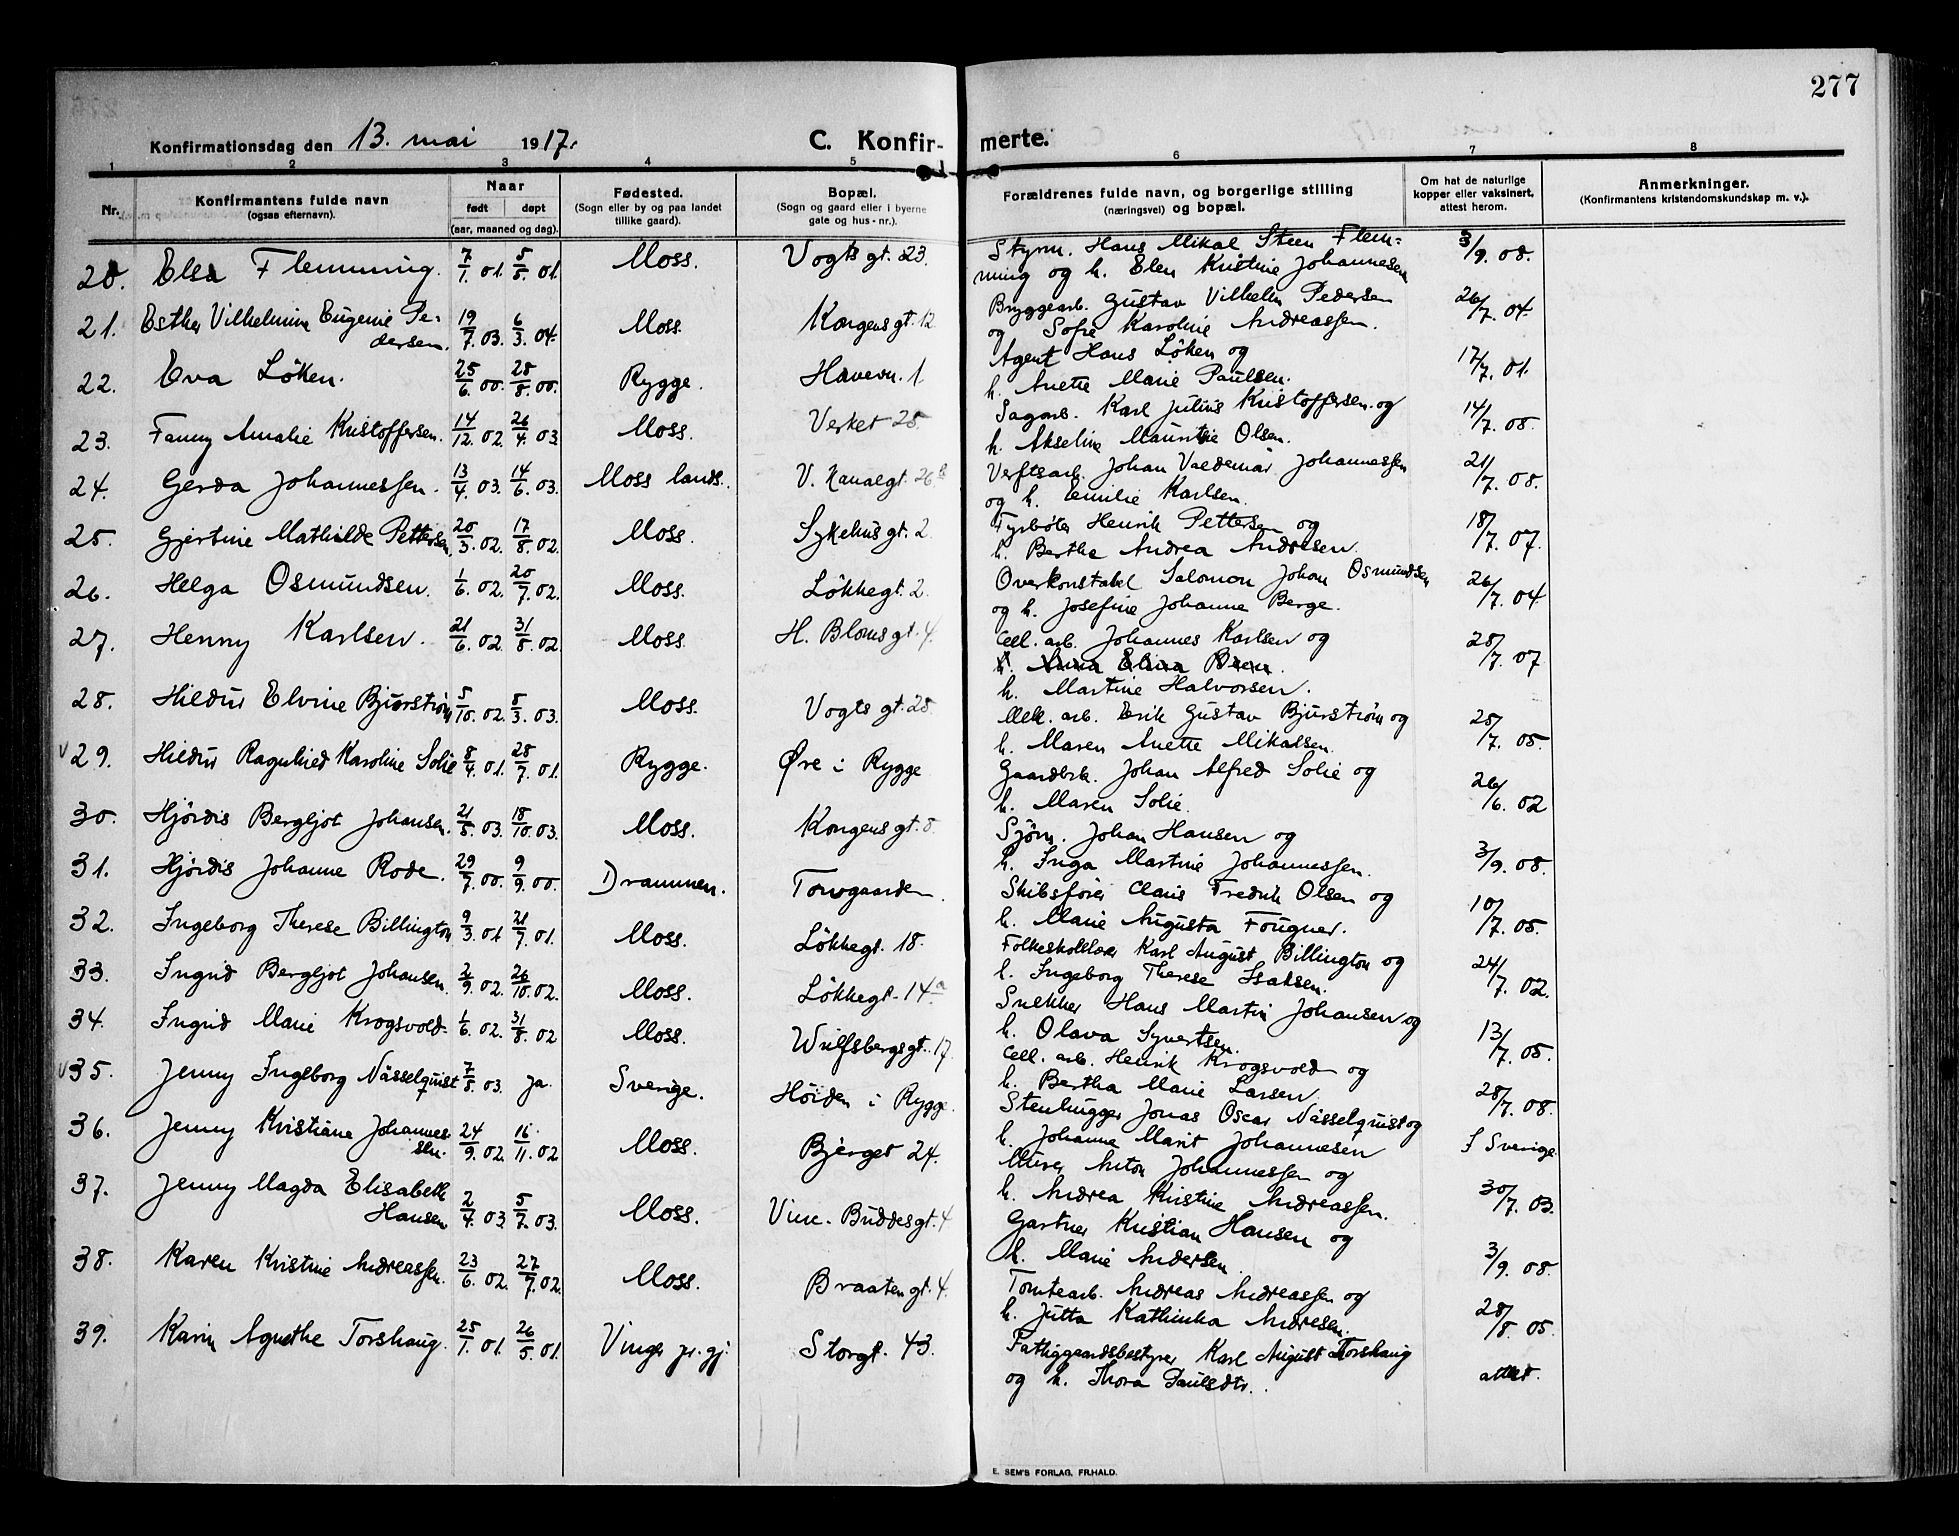 277
Konfirmationsdag den 13. mai 1917.
C. Konfirmerte.
1 2 3 4 5 6 7 8
Nr. Konfirmantens fulde navn (ogsaa efternavn). Naar født døpt (aar, maaned og dag). Fødested. (Sogn eller by og paa landet tillike gaard). Bopæl. (Sogn og gaard eller i byerne gate og hus-nr.). Forældrenes fulde navn, og borgerlige stilling (næringsvei) og bopæl. Om hat de naturlige kopper eller vaksinert, attest herom. Anmerkninger. (Konfirmantens kristendomskundskap m. v.).
20. Elsa Flemming. 7/1. 01. 5/5. 01. Moss. Vogts gt. 23. Styrm. Hans Mikal Steen Flem= 3/9. 08.
ming og h. Elen Kristine Johannesen
21. Esther Vilhelmine Eugenie Pe= 19/7. 03. 6/3. 04. Moss. Kongens gt. 12 Bryggearb. Gustav Vilhelm Pedersen 26/7. 04.
dersen. og Sofie Karoline Andreassen.
22. Eva Löken. 25/6. 00. 28/8. 00. Rygge. Havevn. 1. Agent Hans Löken og 17/7. 01.
h. Anette Marie Paulsen.
23. Fanny Amalie Kristoffersen. 14/12. 02. 26/4. 03. Moss. Verket 28. Sagarb. Karl Julius Kristoffersen og 14/7. 08.
h. Akseline Olsen.
24. Gerda Johannessen. 13/4. 03. 14/6. 03. Moss lands. V. Kanalgt. 26 b Verftsarb. Johan Valdemar Johannessen 21/7. 08.
og h. Emilie Karlsen.
25. Gjertine Mathilde Pettersen 20/3. 02. 17/8. 02. Moss. Sykehusgt. 2. Fyrbøter Henrik Pettersen og 18/7. 07.
h. Berthe Andrea Andresen.
26. Helga Osmundsen. 1/6. 02. 20/7. 02. Moss. Løkkegt. 2. Overkonstabel Salomon Johan Osmundsen 26/7. 04.
og h. Josefine Johanne Berge.
27. Henny Karlsen. 21/6. 02. 31/8. 02. Moss. H. Bloms gt. 4. Cell. arb. Johannes Karlsen og 28/7. 07
h. Martine Halvorsen.
28. Hildur Elvine Bjurström 5/10. 02. 8/3. 03. Moss. Vogts gt. 28. Mek. arb. Erik Gustav Bjurström og 28/7. 05.
h. Maren Anette Mikalsen.
V 29. Hildur Ragnhild Karoline Solie 8/4. 01. 28/7. 01. Rygge. Øre i Rygge Gaardbr. Johan Alfred Solie og 26/6. 02
h. Maren Solie.
30. Hjördis Bergljot Johansen. 21/8. 03. 18/10. 03. Moss. Kongens gt. 8. Sjøm. Johan Hansen og 3/9. 08.
h. Inga Martine Johannessen.
31. Hjördis Johanne Rode. 29/7. 00. 9/9. 00. Drammen. Torvgaarden. Skibsfører Claus Fredrik Olsen og 10/7. 05.
h. Marie Augusta Fougner.
32. Ingeborg Therese Billington 9/3. 01 21/7. 01. Moss. Løkkegt. 18. Folkeskolelær Karl August Billington og 24/7. 02.
h. Ingeborg Therese Isaksen.
33. Ingrid Bergljot Johansen. 2/9. 02. 26/10. 02. Moss. Løkkegt. 14 a Snekker Hans Martin Johansen og 13/7. 05.
h. Olava Syvertsen.
34. Ingrid Marie Krogsvold. 1/6. 02. 31/8. 02 Moss. Wulfsbergsgt. 17. Cell. arb. Henrik Krogsvold og 28/7. 08.
h. Bertha Marie Larsen.
V 35. Jenny Ingeborg Nässelquist 7/8. 03. ja. Sverige. Høiden i Rygge. Stenhugger Jonas Oscar Nässelquist og I Sverige
h. Johanne Marit Johannesen
36. Jenny Kristiane Johannes 24/9. 02. 16/11. 02. Moss. Bjerget 24. Murer Anton Johannessen og 30/7. 03.
sen. h. Andrea Kristine Andreassen.
37. Jenny Magda Elisabeth 2/4. 03. 5/7. 03. Moss. Vinc. Buddesgt. 4 Gartner Kristian Hansen og 3/9. 08.
Hansen h. Marie Andersen.
38. Karen Kristine Andreassen. 23/6. 02. 27/7. 02. Moss. Braatengt. 4. Tomtearb. Andreas Andreassen og 28/8. 05.
h. Jutta Kathinka Andresen.
39. Karin Agnethe Torshaug. 25/1. 01. 26/5. 01. Vinger pr. gj. Storgt. 43. Fattiggaardsbestyrer Karl August Torshaug attest.
og h. Thora Paulsdtr.
E. SEM'S FORLAG, FR.HALD.